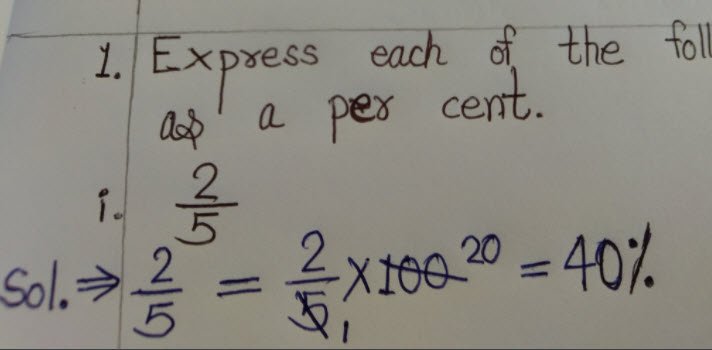 1. Express each of the foll
as a per cent.
i. 2/5
Sol. ⇒ 2/5 = 2/5 1 × 100 20 = 40%